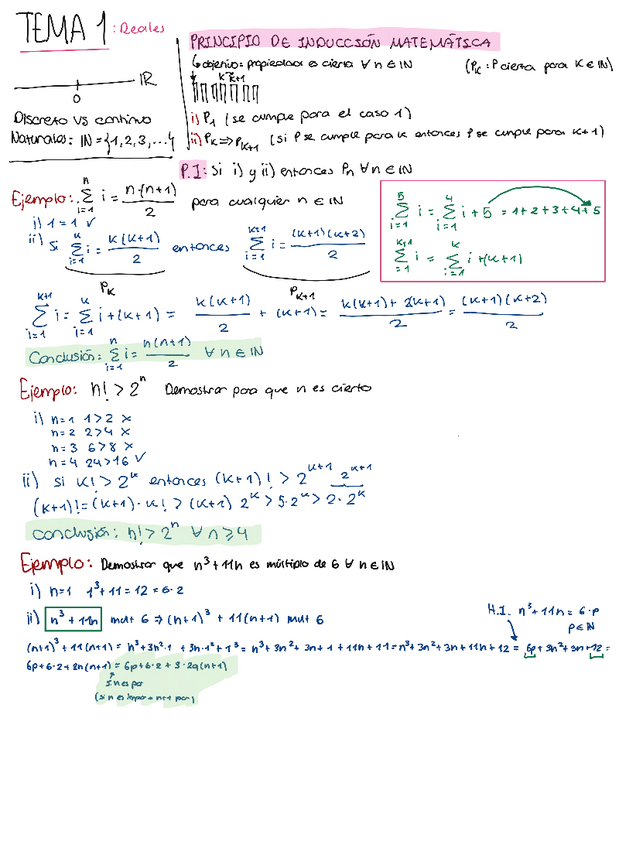 TEMA 1 : Reales
IR
0
Discreto vs continuo
Naturales: IN = {1, 2, 3, ...}
PRINCIPIO DE INDUCCIÓN MATEMÁTICA
objetivo: propiedad es cierta ∀ n ∈ IN (Pₖ : P cierta para K ∈ IN)
K K+1
i) P₁ (se cumple para el caso 1)
ii) Pₖ ⇒ Pₖ₊₁ (si P se cumple para k entonces P se cumple para k+1)
P.I: Si i) y ii) entonces Pₙ ∀ n ∈ IN
Ejemplo: Σⁿᵢ₌₁ i = n·(n+1)/2 para cualquier n ∈ IN
i) 1 = 1 ✓
ii) Si Σᵏᵢ₌₁ i = k(k+1)/2 entonces Σᵏ⁺¹ᵢ₌₁ i = (k+1)(k+2)/2
Pₖ Pₖ₊₁
Σ⁵ᵢ₌₁ i = Σ⁴ᵢ₌₁ i + 5 = 1+2+3+4+5
Σᵏ⁺¹₌₁ i = Σᵏᵢ₌₁ i + (k+1)
Σᵏ⁺¹ᵢ₌₁ i = Σᵏᵢ₌₁ i + (k+1) = k(k+1)/2 + (k+1) = k(k+1) + 2(k+1)/2 = (k+1)(k+2)/2
Conclusión: Σⁿᵢ₌₁ i = n(n+1)/2 ∀ n ∈ IN
Ejemplo: n! > 2ⁿ Demostrar para que n es cierto
i) n=1 1>2 ×
n=2 2>4 ×
n=3 6>8 ×
n=4 24>16 ✓
ii) si k! > 2ᵏ entonces (k+1)! > 2ᵏ⁺¹ 2ᵏ⁺¹
(k+1)! = (k+1)·k! > (k+1) 2ᵏ > 5·2ᵏ > 2·2ᵏ
conclusión: n! > 2ⁿ ∀ n ≥ 4
Ejemplo: Demostrar que n³+11n es múltiplo de 6 ∀ n ∈ IN
i) n=1 1³+11 = 12 = 6·2
ii) n³+11n mult 6 ⇒ (n+1)³ + 11(n+1) mult 6
H.I. n³+11n = 6·p
p ∈ IN
(n+1)³ + 11(n+1) = n³+3n²·1 + 3n·1²+1³ = n³+3n²+3n+1+11n+11 = n³+3n²+3n+11n+12 = 6p+3n²+3n+12 =
6p+6·2+3n(n+1) = 6p+6·2 + 3·2q(n+1)
si n es par
(si n es impar n+1 par)